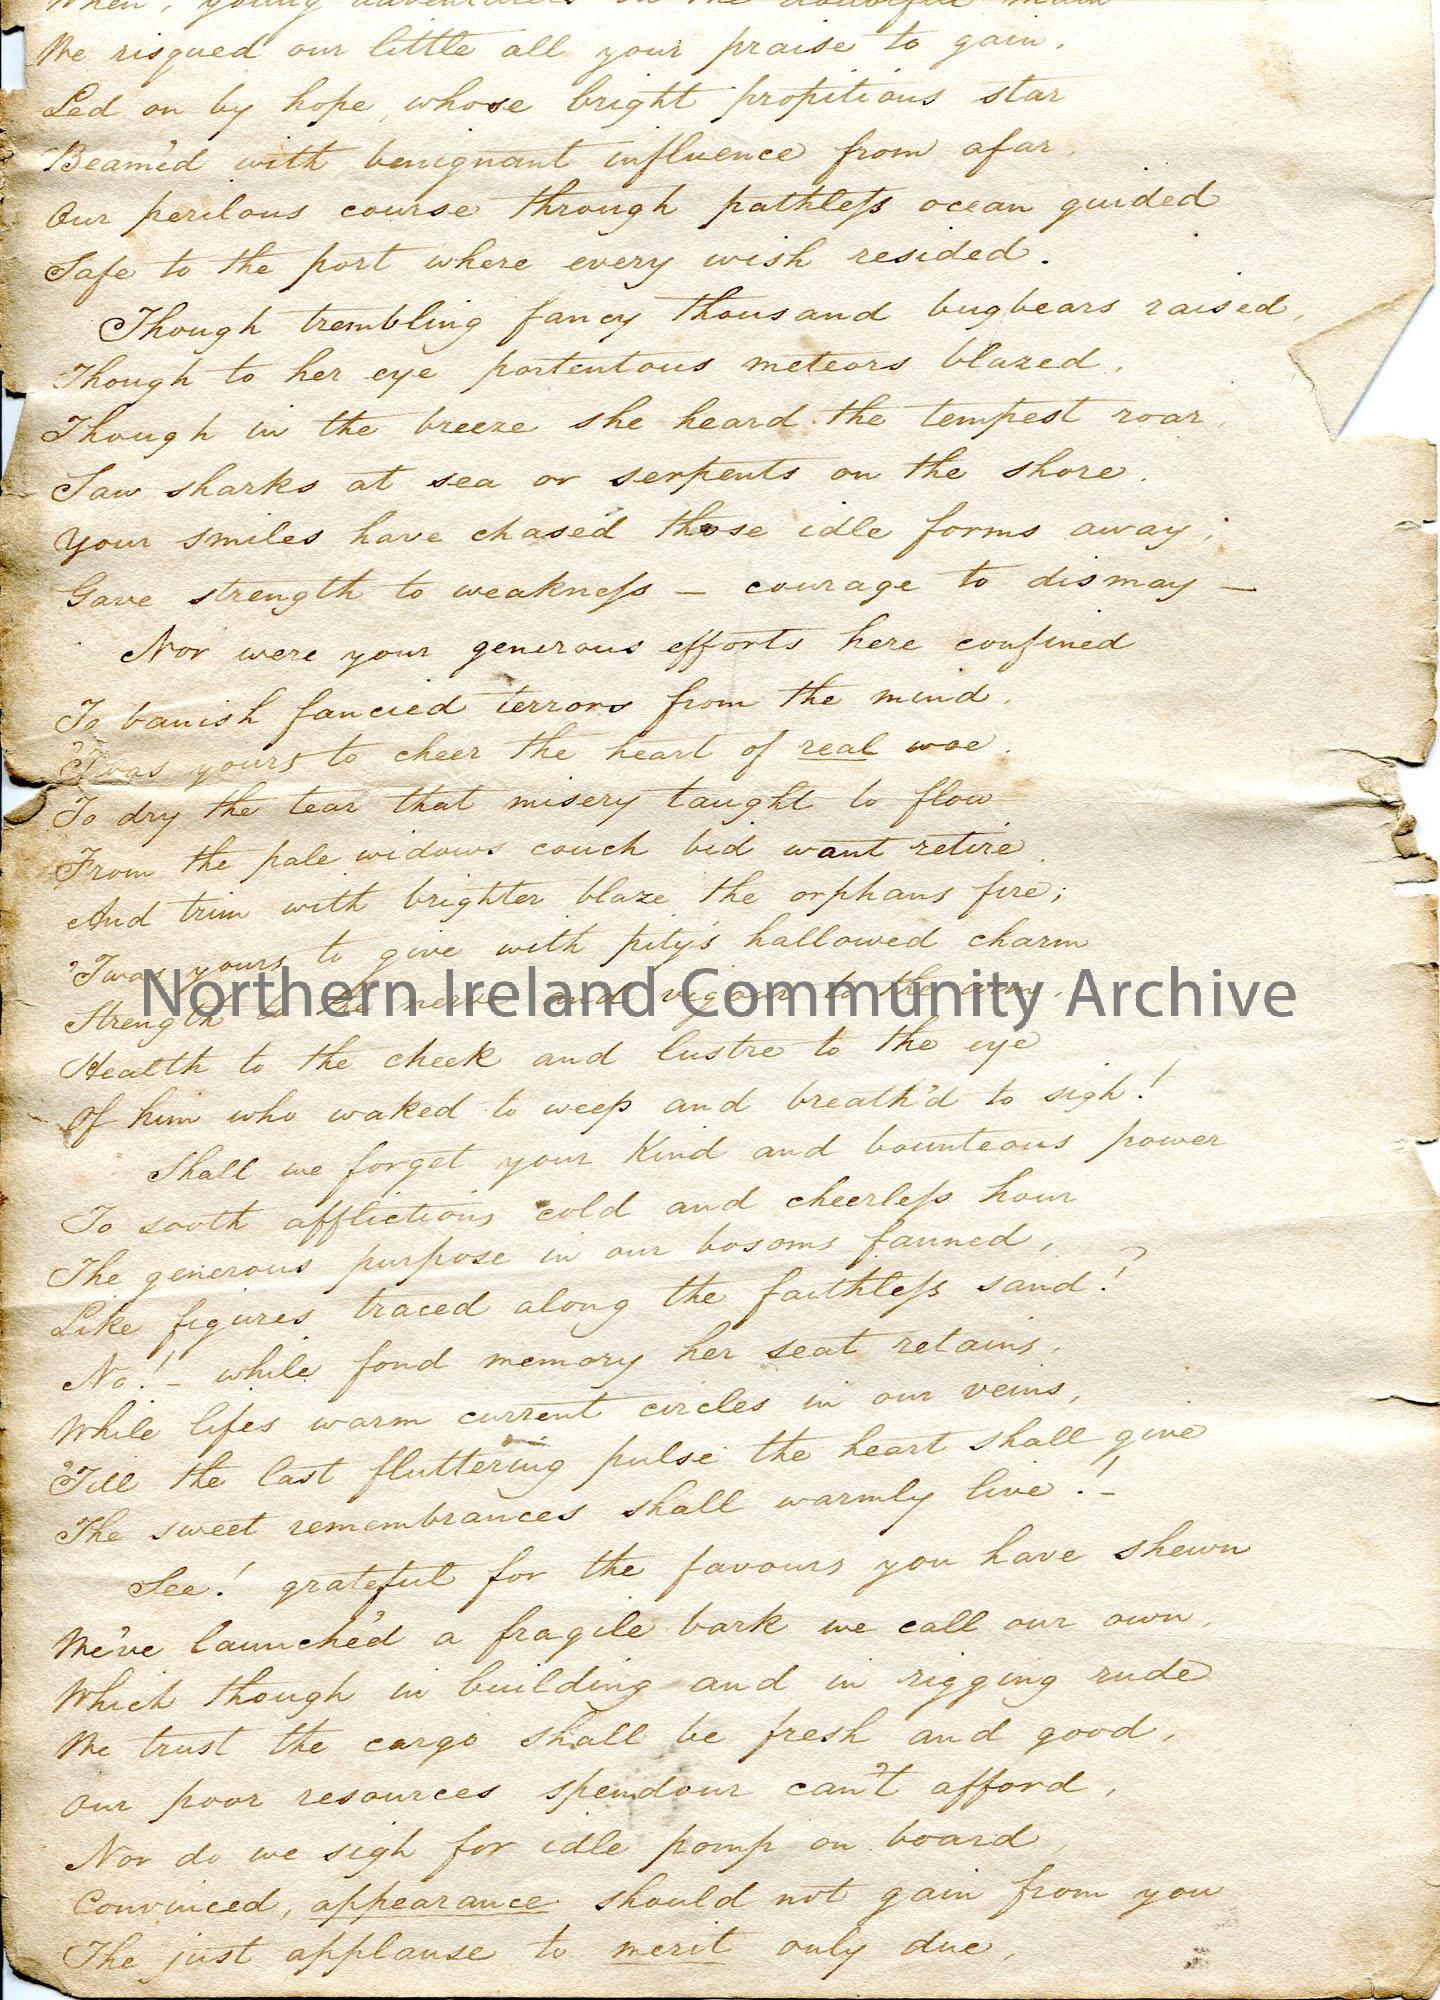 When, young adventurers on the doubtful main
We risqued our little all your praise to gain,
Led on by hope, whose bright propitious star
Beam'd with benignant influence from afar,
Our perilous course through pathless ocean guided
Safe to the port where every wish resided.
Though trembling fancy thousand bugbears raised,
Though to her eye portentous meteors blazed,
Though in the breeze she heard the tempest roar,
Saw sharks at sea or serpents on the shore.
Your smiles have chased those idle forms away;
Gave strength to weakness – courage to dismay –
Nor were your generous efforts here confined
To banish fancied terrors from the mind.
'Twas yours to cheer the heart of real woe.
To dry the tear that misery taught to flow
From the pale widows couch bid want retire
And trim with brighter blaze the orphans fire;
'Twas yours to give with pity's hallowed charm
Northern Ireland Community Archive
Strength to the nerve and vigour to the arm,
Health to the cheek and lustre to the eye
Of him who waked to weep and breath'd to sigh!
Shall we forget your kind and bounteous power
To sooth afflictions cold and cheerless hour
The generous purpose in our bosoms fanned,
Like figures traced along the faithless sand!?
No! – while fond memory her seat retains,
While lifes warm current circles in our veins,
'Till the last fluttering pulse the heart shall give
The sweet remembrances shall warmly live! –
See! grateful for the favours you have shewn
We've launch'd a fragile bark we call our own,
Which though in building and in rigging rude
We trust the cargo shall be fresh and good,
Our poor resources spendour can't afford,
Nor do we sigh for idle pomp on board,
Convinced, appearance should not gain from you
The just applause to merit only due,